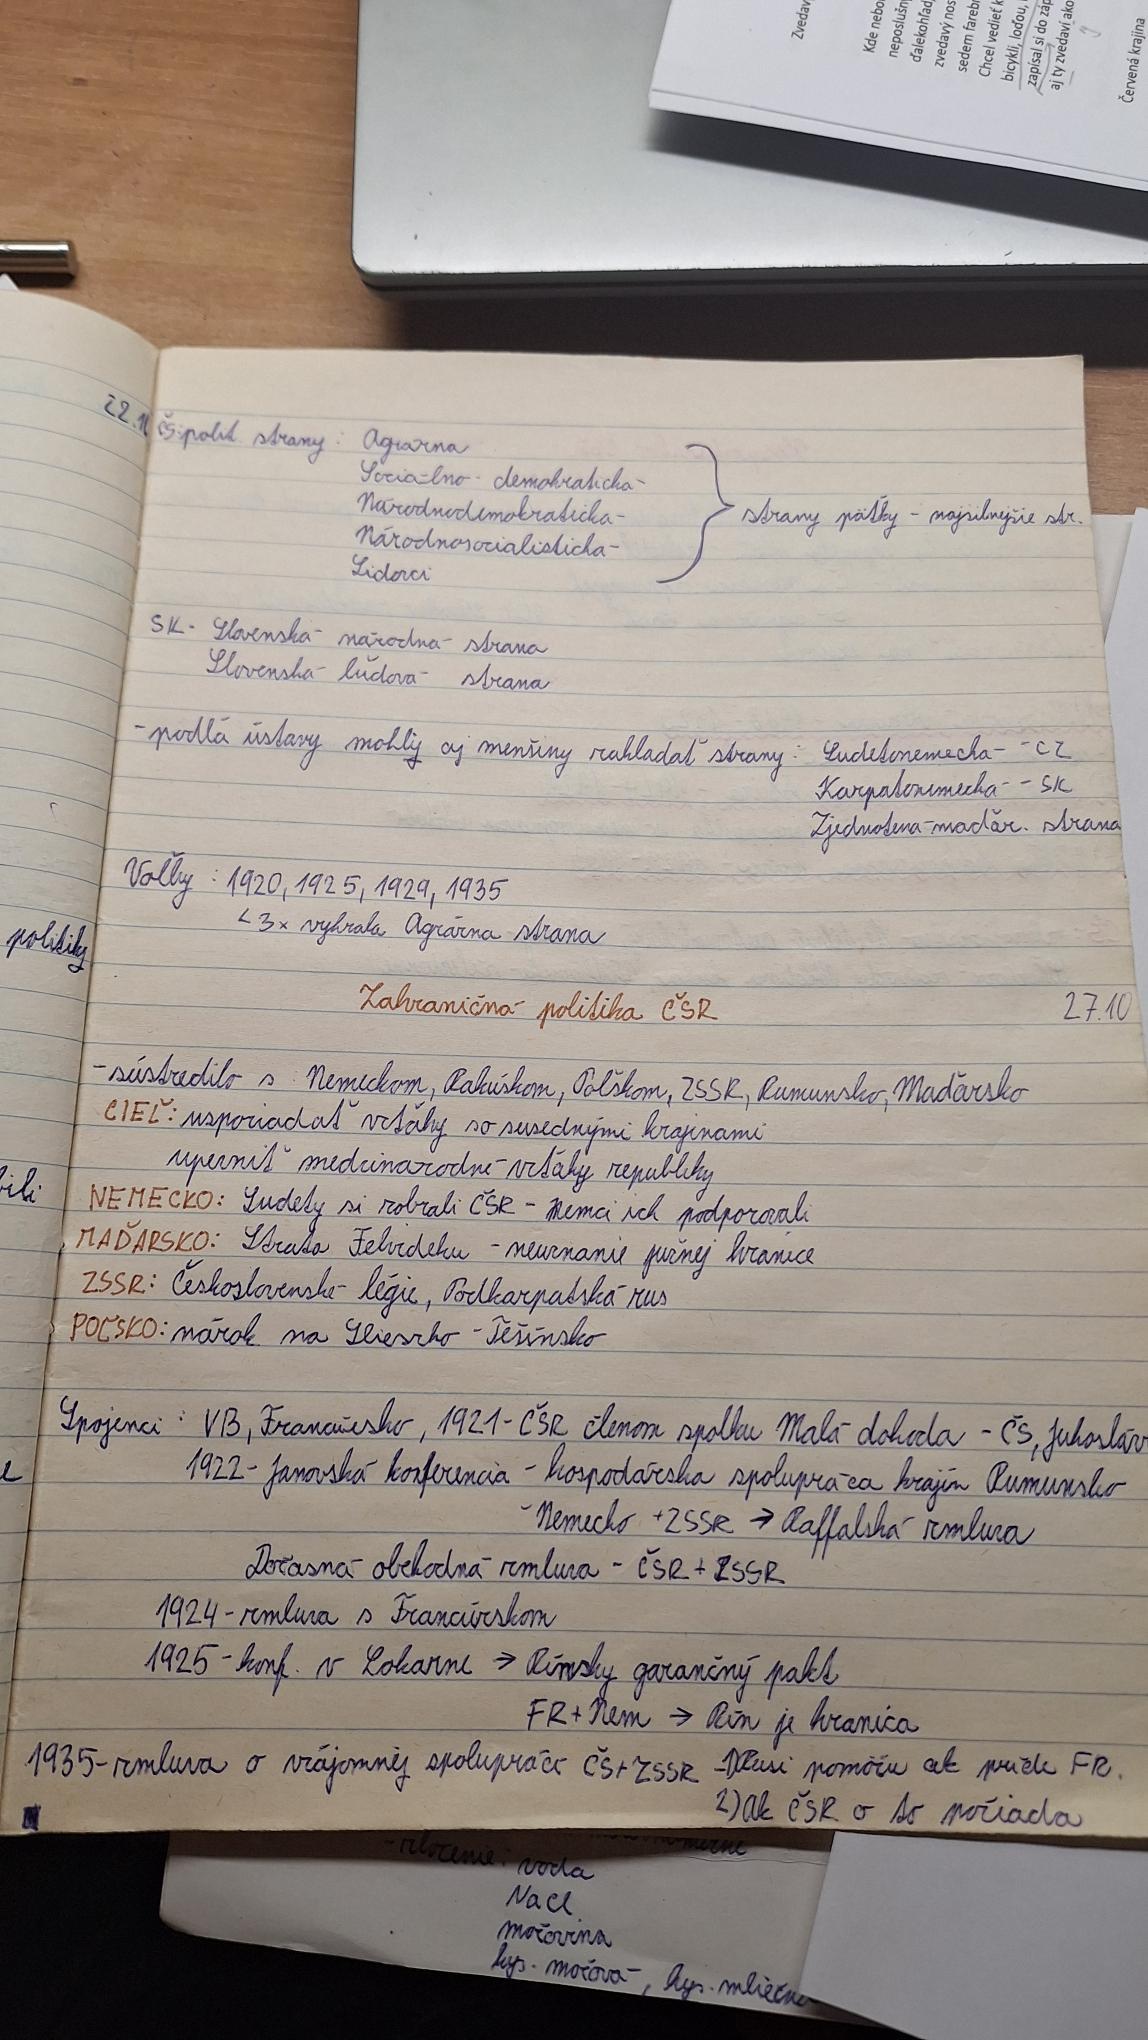 Zvedavý
Kde nebo
neposlušn
ďalekohľad
zvedavý nos
sedem farebn
Chcel vedieť k
bicykli, loďou,
zapísal si do záp
aj ty zvedaví ako
Červená krajina
22.10
ČS polit. strany: Agrárna
Sociálno-demokratická
Národnodemokratická
Národnosocialistická
Lidovci
strany pätky - najsilnejšie str.
SK - Slovenská národná strana
Slovenská ľudová strana
- podľa ústavy mohli aj menšiny zakladať strany: Sudetonemecká - CZ
Karpatonemecká - SK
Zjednotená maďar. strana
Voľby: 1920, 1925, 1929, 1935
3x vyhrala Agrárna strana
politiky
Zahraničná politika ČSR 27.10
- sústredilo s Nemeckom, Rakúskom, Poľskom, ZSSR, Rumunsko, Maďarsko
CIEĽ: usporiadať vzťahy so susednými krajinami
upevniť medzinárodné vzťahy republiky
NEMECKO: Sudety si zobrali ČSR - Nemci ich podporovali
MAĎARSKO: Strata Felvideku - neuznanie južnej hranice
ZSSR: Československé légie, Podkarpatská rus
POĽSKO: nárok na Sliezsko - Tešínsko
Spojenci: VB, Francúzsko, 1921 - ČSR členom spolku Malá dohoda - ČS, Juhosláv
1922 - Janovská konferencia - hospodárska spolupráca krajín Rumunsko
- Nemecko + ZSSR → Raffalská zmluva
Dočasná obchodná zmluva - ČSR + ZSSR
1924 - zmluva s Francúzskom
1925 - konf. v Lokarne → Rínsky garančný pakt
FR + Nem → Rín je hranica
1935 - zmluva o vzájomnej spolupráci ČS + ZSSR - 1) Rusi pomôžu ak príde FR.
2) Ak ČSR o to požiada
voda
NaCl
močovina
kys. močová, kys. mliečna